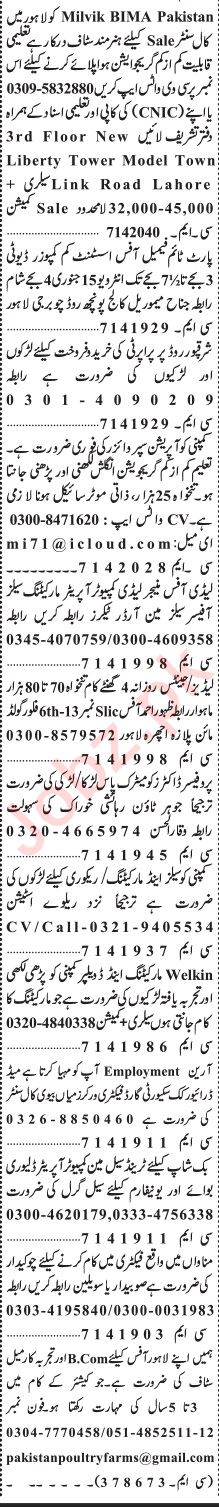 Milvik BIMA Pakistan کو لاہور میں
کال سنٹر Sale کیلئے ہنرمند سٹاف درکار ہے تعلیمی
قابلیت کم از کم گریجوایشن ہو اپلائے کرنے کیلئے اس
نمبر پر سی وی واٹس ایپ کریں 0309-5832880
یا اپنے (CNIC) کی کاپی اور تعلیمی اسناد کے ہمراہ
دفتر تشریف لائیں 3rd Floor New
Liberty Tower Model Town
Link Road Lahore سیلری +
32,000-45,000 لامحدود Sale کمیشن
سی۔ایم۔ 7142040
پارٹ ٹائم فیمیل آفس اسسٹنٹ کم کمپوزر ڈیوٹی
3 بجے تا 7½ بجے تک انٹرویو 15 جنوری 4 بجے شام
رابطہ جناح میموریل کالج پونچھ روڈ چوبرجی لاہور
سی ایم۔ 7141929
شرقپور روڈ پر پراپرٹی کی خرید و فروخت کیلئے لڑکوں
اور لڑکیوں کی ضرورت ہے رابطہ
0301-4090209
سی ایم۔ 7141929
کمپنی کو آپریشن سپروائزر کی فوری ضرورت ہے۔
تعلیم کم از کم گریجویشن انگلش لکھنی اور پڑھنی جانتا
ہو۔ تنخواہ 25 ہزار، ذاتی موٹر سائیکل ہونا لازمی
ہے۔ CV واٹس ایپ : 0300-8471620
ای میل: mi71@icloud.com
سی ۔ایم 7142028
لیڈی آفس منیجر لیڈی کمپیوٹر آپریٹر مارکیٹنگ سیلز
آفیسر سیلز مین آرڈر ٹیکرز رابطہ کریں رابطہ
0345-4070759/0300-4609358
سی ایم 7141998
لیڈیز/جینٹس روزانہ 4 گھنٹے کام تنخواہ 70 تا 80 ہزار
ماہوار رابطہ ظہور احمد آفس Slic نمبر 13-6th فلور گولڈ
مائن پلازہ اچھرہ لاہور 0300-8579572
سی ایم 7141998
پروفیسر ڈاکٹر کو میٹرک پاس لڑکا/لڑکی کی ضرورت
ترجیحاً جوہر ٹاؤن رہائشی خوراک کی سہولت
رابطہ وقار الحسن 0320-4665974
سی ایم 7141945
کمپنی کو سیلز اینڈ مارکیٹنگ/ ریکوری کیلئے لڑکوں کی
ضرورت ہے ترجیحاً نزد ریلوے اسٹیشن
CV/Call-0321-9405534
سی ایم 7141937
Welkin مارکیٹنگ اینڈ ڈویلپر کمپنی کو پڑھی لکھی
اور تجربہ یافتہ لڑکیوں کی ضرورت ہے جو مارکیٹنگ کا
کام جانتی ہوں سیلری + کمیشن 0320-4840338
سی ایم 7141986
آرین Employment آپ کو مہیا کرتا ہے میڈ
ڈرائیور کک سیکورٹی گارڈ فیکٹری ورکرز میاں بیوی کال سنٹر
کی ضرورت ہے 0326-8850460
سی ایم 7141911
بک شاپ کیلئے ٹرینڈ سیل مین کمپیوٹر آپریٹر ڈلیوری
بوائے اور یونیفارم کیلئے سیل گرل کی ضرورت
0300-4620179,0333-4756338
سی ایم 7141911
مناواں میں واقع فیکٹری میں کام کرنے کیلئے چوکیدار
کی ضرورت ہے صوبیدار یا سویلین رابطہ کریں رابطہ
0303-4195840/0300-0031983
سی ایم 7141903
ہمیں اپنے لاہور آفس کیلئے B.Com اور تجربہ کار میل
سٹاف کی ضرورت ہے۔ جو کیشئر کے کام میں
3 تا 5 سال کی مہارت رکھتا ہو۔ فون نمبر
0304-7770458/051-4852511-12
pakistanpoultryfarms@gmail.com
(سی ایم۔ 378673)